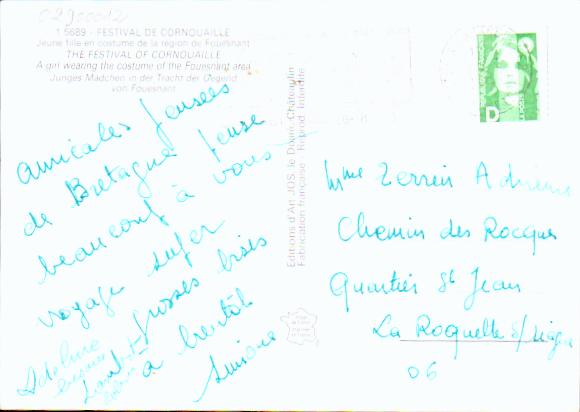 02900012
1 5689 - FESTIVAL DE CORNOUAILLE
Jeune fille en costume de la région de Fouesnant
THE FESTIVAL OF CORNOUAILLE
A girl wearing the costume of the Fouesnant area
Junges Mädchen in der Tracht der Gegend
von Fouesnant
amicales pensées
de Bretagne pense
beaucoup à vous
voyage super
grosses bises
à bientôt
Simone
Editions d'Art JOS, le Doaré, Châteaulin
Fabrication française - Reprod. Interdite
D
Mme Terrein
Chemin des Rocques
Quartier St Jean
La Roquette s/
06